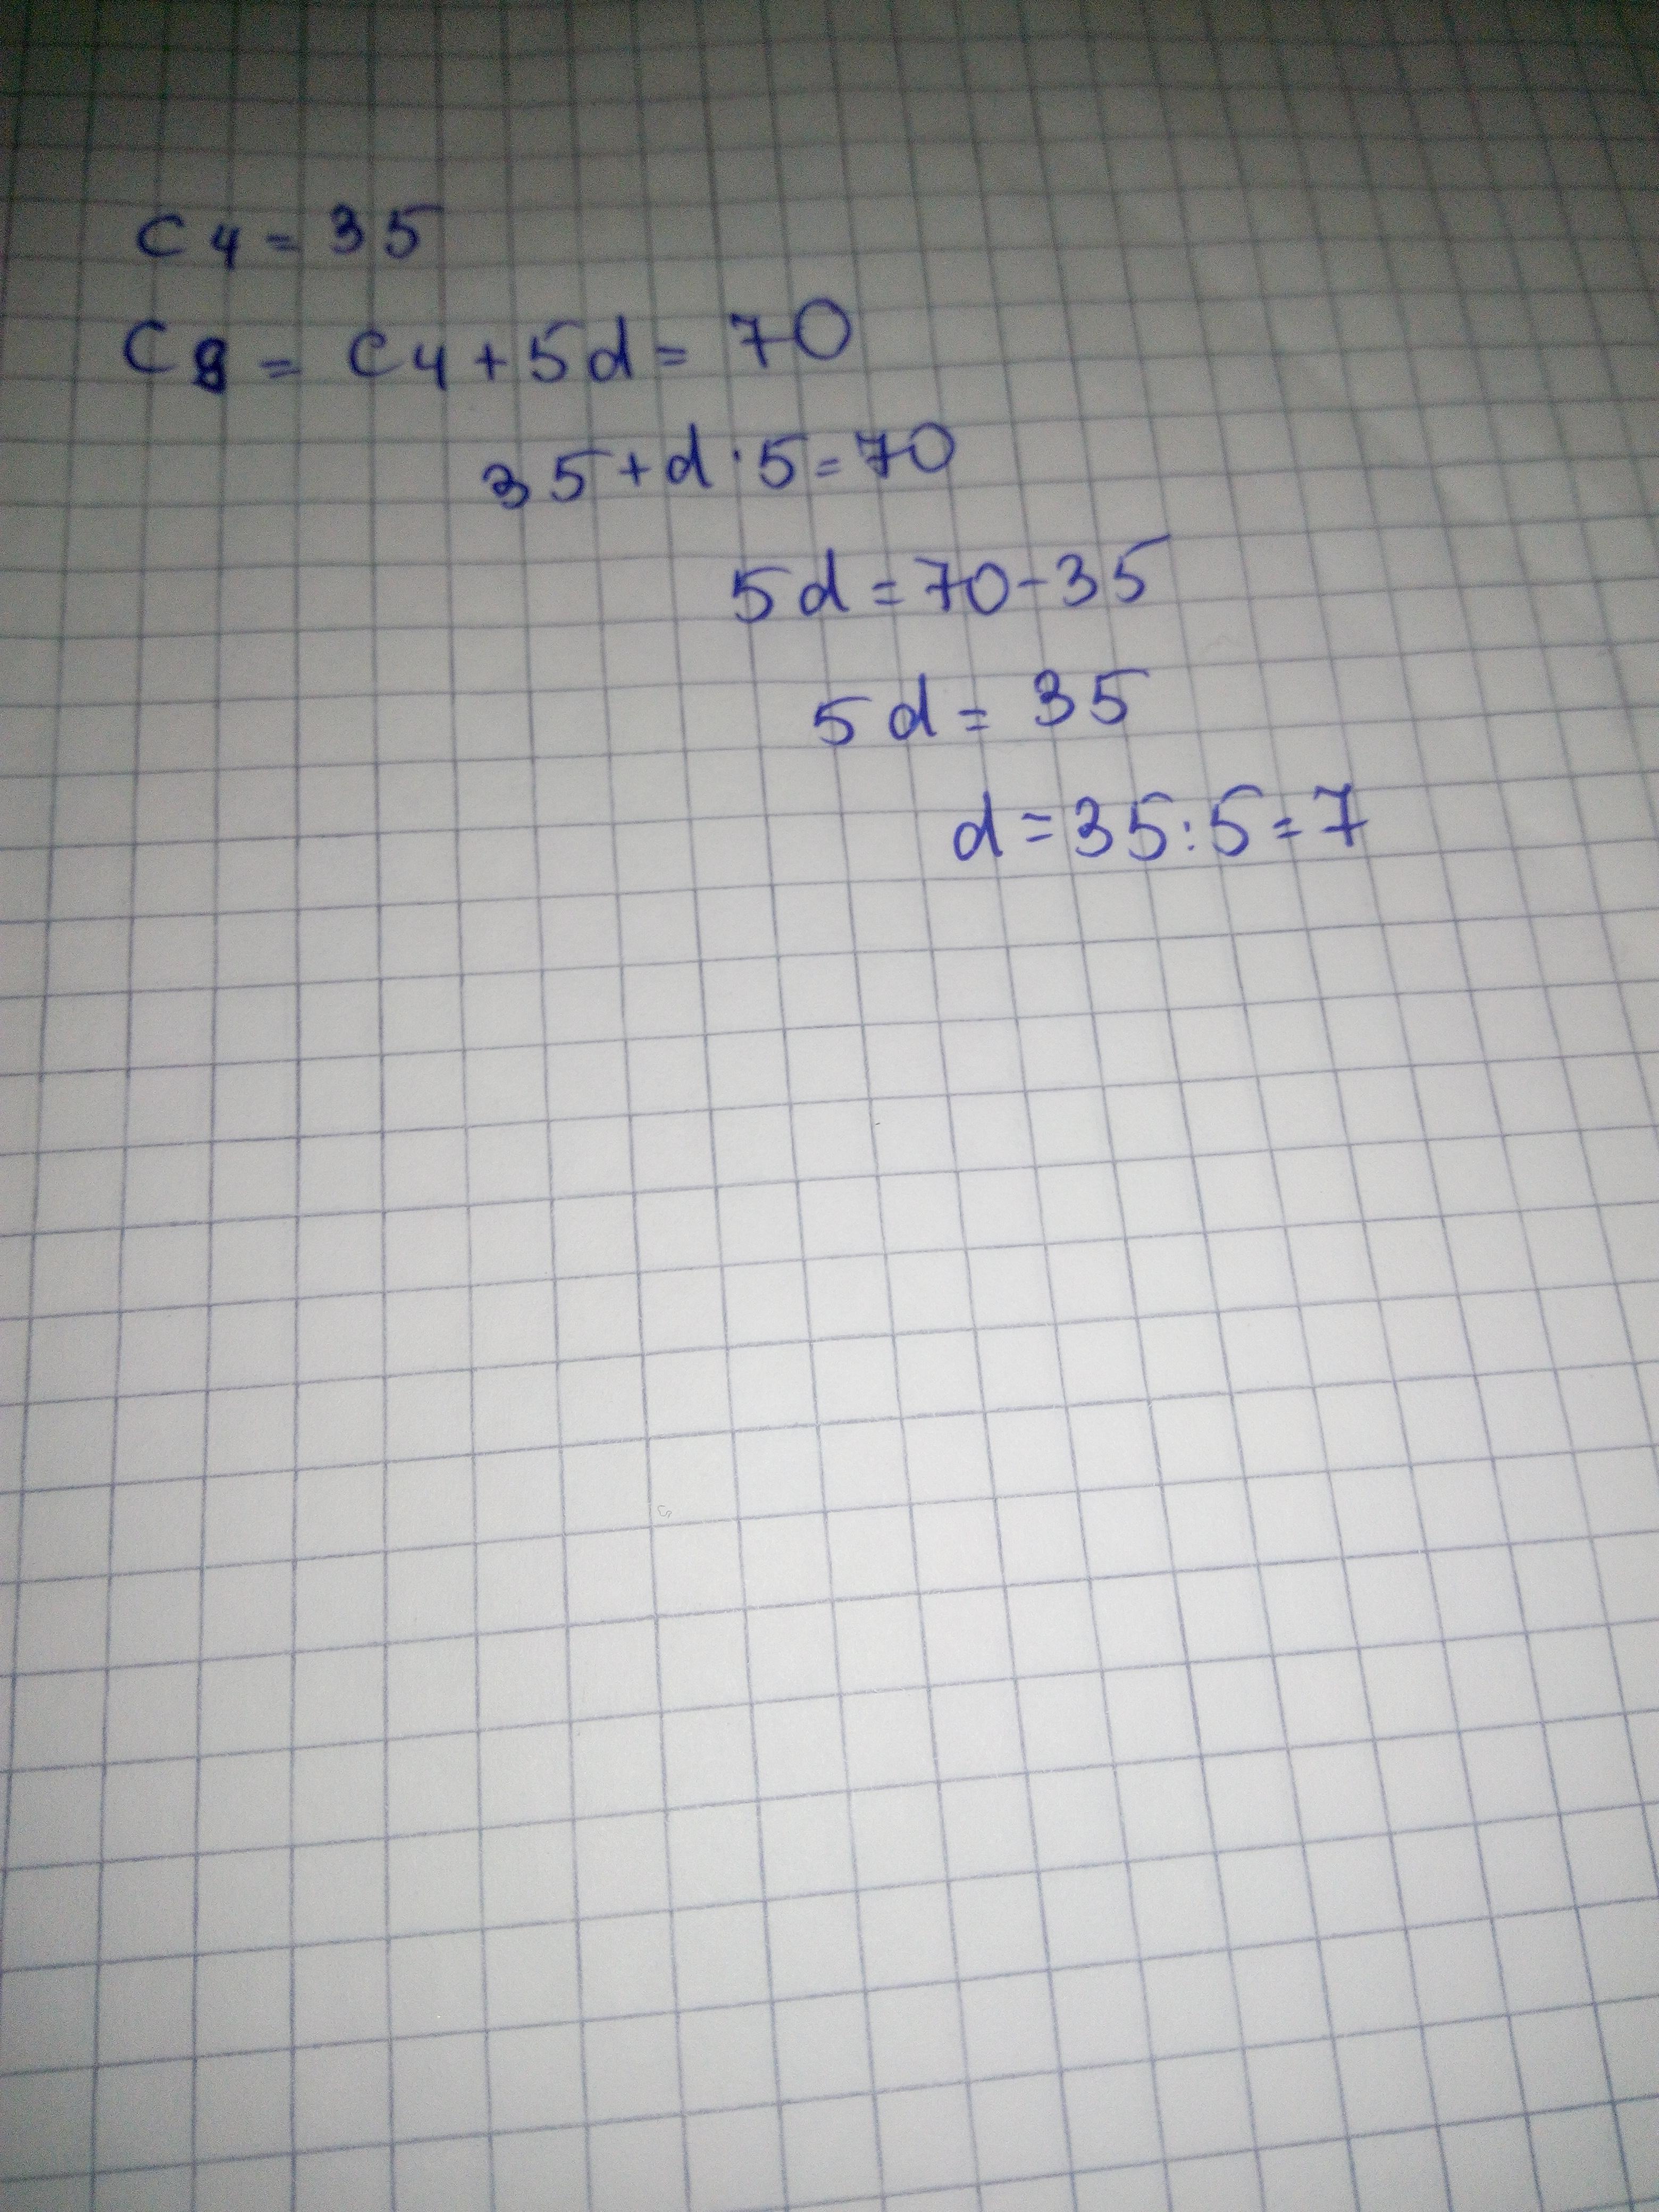 c4 = 35
C8 = c4 + 5d = 70
35 + d · 5 = 70
5d = 70 - 35
5d = 35
d = 35 : 5 = 7